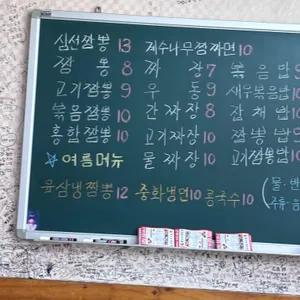 삼선짬뽕 13 제수나무정짜면 10
짬뽕 8 짜장 7 볶음밥 9
고기짬뽕 9 우동 9 새우볶음밥 10
볶음짬뽕 10 간짜장 8 잡채밥 10
홍합짬뽕 10 고기짜장 10 짬뽕밥
☆여름메뉴 물짜장 10 고기짬뽕밥 10
육삼냉짬뽕 12 중화냉면 10 콩국수 10